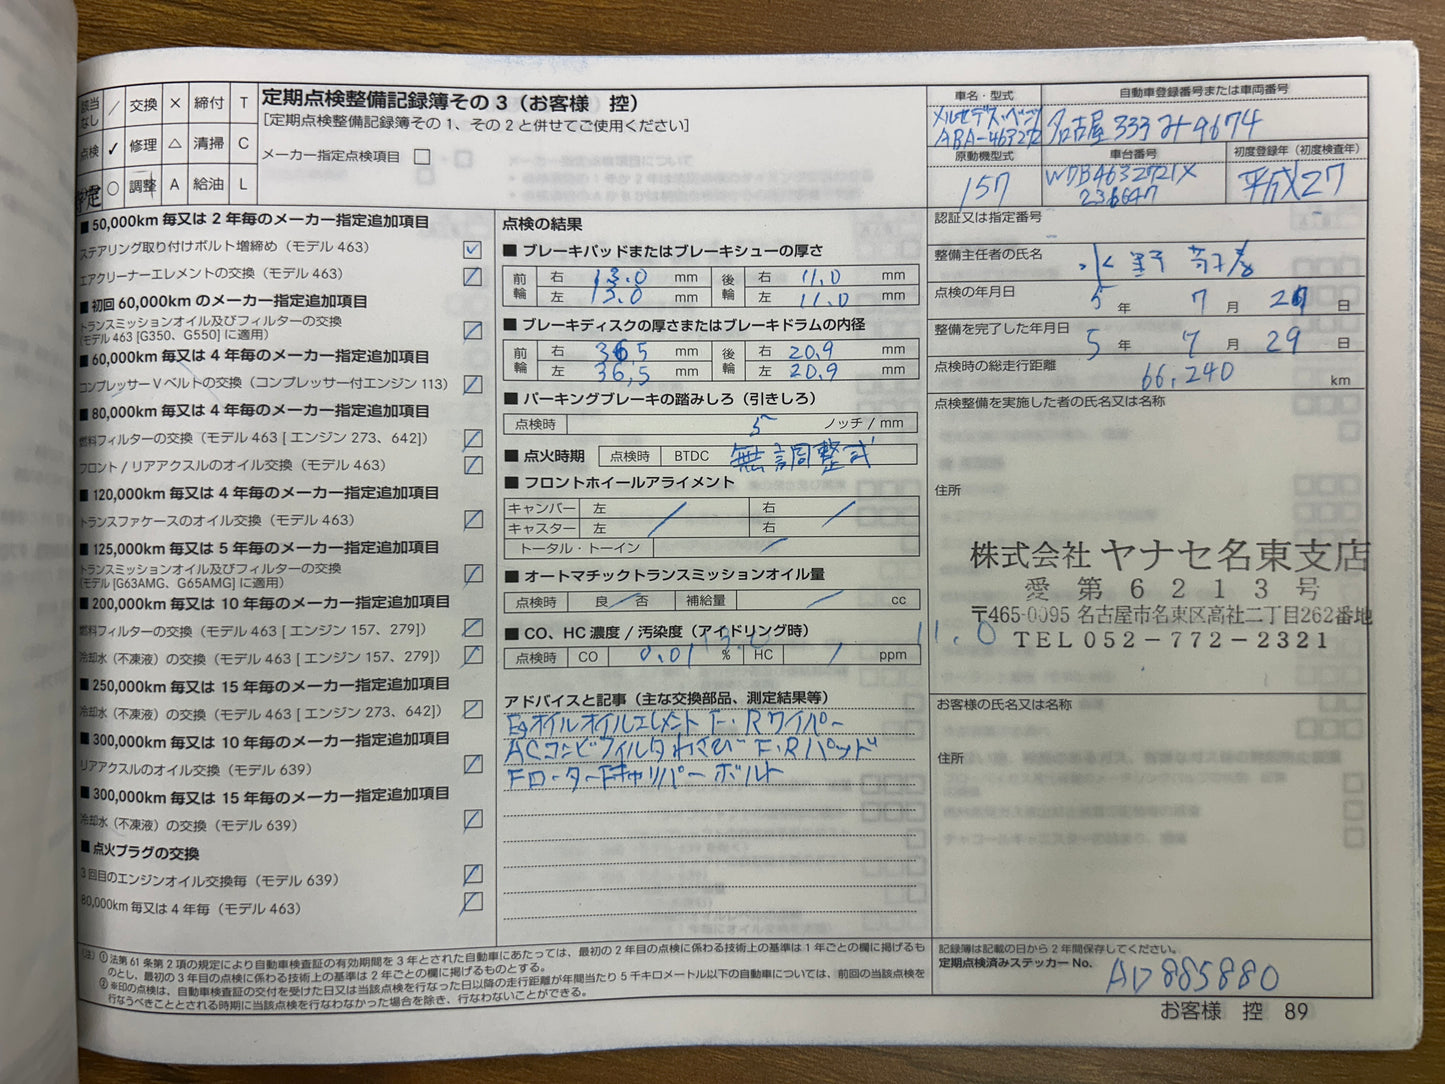 該当なし / 交換 × 締付 T
点検 ✓ 修理 △ 清掃 C
○ 調整 A 給油 L
定期点検整備記録簿その3（お客様 控）
[定期点検整備記録簿その1、その2と併せてご使用ください]
メーカー指定点検項目 □
車名・型式
メルセデス・ベンツ
ABA-463272
自動車登録番号または車両番号
名古屋 333 み 9674
原動機型式
157
車台番号
WDB4632721X
236647
初度登録年（初度検査年）
平成27
■ 50,000km 毎又は 2 年毎のメーカー指定追加項目
ステアリング取り付けボルト増締め（モデル 463）
エアクリーナーエレメントの交換（モデル 463）
■ 初回 60,000km のメーカー指定追加項目
トランスミッションオイル及びフィルターの交換
（モデル 463 [G350、G550] に適用）
■ 60,000km 毎又は 4 年毎のメーカー指定追加項目
コンプレッサー V ベルトの交換（コンプレッサー付エンジン 113）
■ 80,000km 毎又は 4 年毎のメーカー指定追加項目
燃料フィルターの交換（モデル 463 [ エンジン 273、642]）
フロント / リアアクスルのオイル交換（モデル 463）
■ 120,000km 毎又は 4 年毎のメーカー指定追加項目
トランスファケースのオイル交換（モデル 463）
■ 125,000km 毎又は 5 年毎のメーカー指定追加項目
トランスミッションオイル及びフィルターの交換
（モデル [G63AMG、G65AMG] に適用）
■ 200,000km 毎又は 10 年毎のメーカー指定追加項目
燃料フィルターの交換（モデル 463 [ エンジン 157、279]）
冷却水（不凍液）の交換（モデル 463 [ エンジン 157、279]）
■ 250,000km 毎又は 15 年毎のメーカー指定追加項目
冷却水（不凍液）の交換（モデル 463 [ エンジン 273、642]）
■ 300,000km 毎又は 10 年毎のメーカー指定追加項目
リアアクスルのオイル交換（モデル 639）
■ 300,000km 毎又は 15 年毎のメーカー指定追加項目
冷却水（不凍液）の交換（モデル 639）
■ 点火プラグの交換
3 回目のエンジンオイル交換毎（モデル 639）
80,000km 毎又は 4 年毎（モデル 463）
点検の結果
■ ブレーキパッドまたはブレーキシューの厚さ
前輪 右 13.0 mm 後輪 右 11.0 mm
左 13.0 mm 左 11.0 mm
■ ブレーキディスクの厚さまたはブレーキドラムの内径
前輪 右 36,5 mm 後輪 右 20.9 mm
左 36,5 mm 左 20.9 mm
■ パーキングブレーキの踏みしろ（引きしろ）
点検時 5 ノッチ / mm
■ 点火時期 点検時 BTDC 無調整式
■ フロントホイールアライメント
キャンバー 左 右
キャスター 左 / 右 /
トータル・トーイン /
■ オートマチックトランスミッションオイル量
点検時 良 / 否 補給量 / cc
■ CO、HC 濃度 / 汚染度（アイドリング時）
13.0 11.0
点検時 CO 0.01 % HC / ppm
アドバイスと記事（主な交換部品、測定結果等）
Egオイル オイルエレメント F・Rワイパー
ACコンビフィルタ わさび F・Rパッド
Fローター Fキャリパーボルト
認証又は指定番号
整備主任者の氏名
水野
点検の年月日 5 年 7 月 29 日
整備を完了した年月日 5 年 7 月 29 日
点検時の総走行距離 66,240 km
点検整備を実施した者の氏名又は名称
住所
株式会社 ヤナセ名東支店
愛第6213号
〒465-0095 名古屋市名東区高社二丁目262番地
TEL052-772-2321
お客様の氏名又は名称
住所
（注）① 法第 61 条第 2 項の規定により自動車検査証の有効期間を 3 年とされた自動車にあたっては、最初の 2 年目の点検に係わる技術上の基準は 1 年ごとの欄に掲げるも
のとし、最初の 3 年目の点検に係わる技術上の基準は 2 年ごとの欄に掲げるものとする。
② ※印の点検は、自動車検査証の交付を受けた日又は当該点検を行なった日以降の走行距離が年間当たり 5 千キロメートル以下の自動車については、前回の当該点検を
行なうべきこととされる時期に当該点検を行なわなかった場合を除き、行なわないことができる。
記録簿は記載の日から 2 年間保存してください。
定期点検済みステッカー No. AD 885880
お客様 控 89